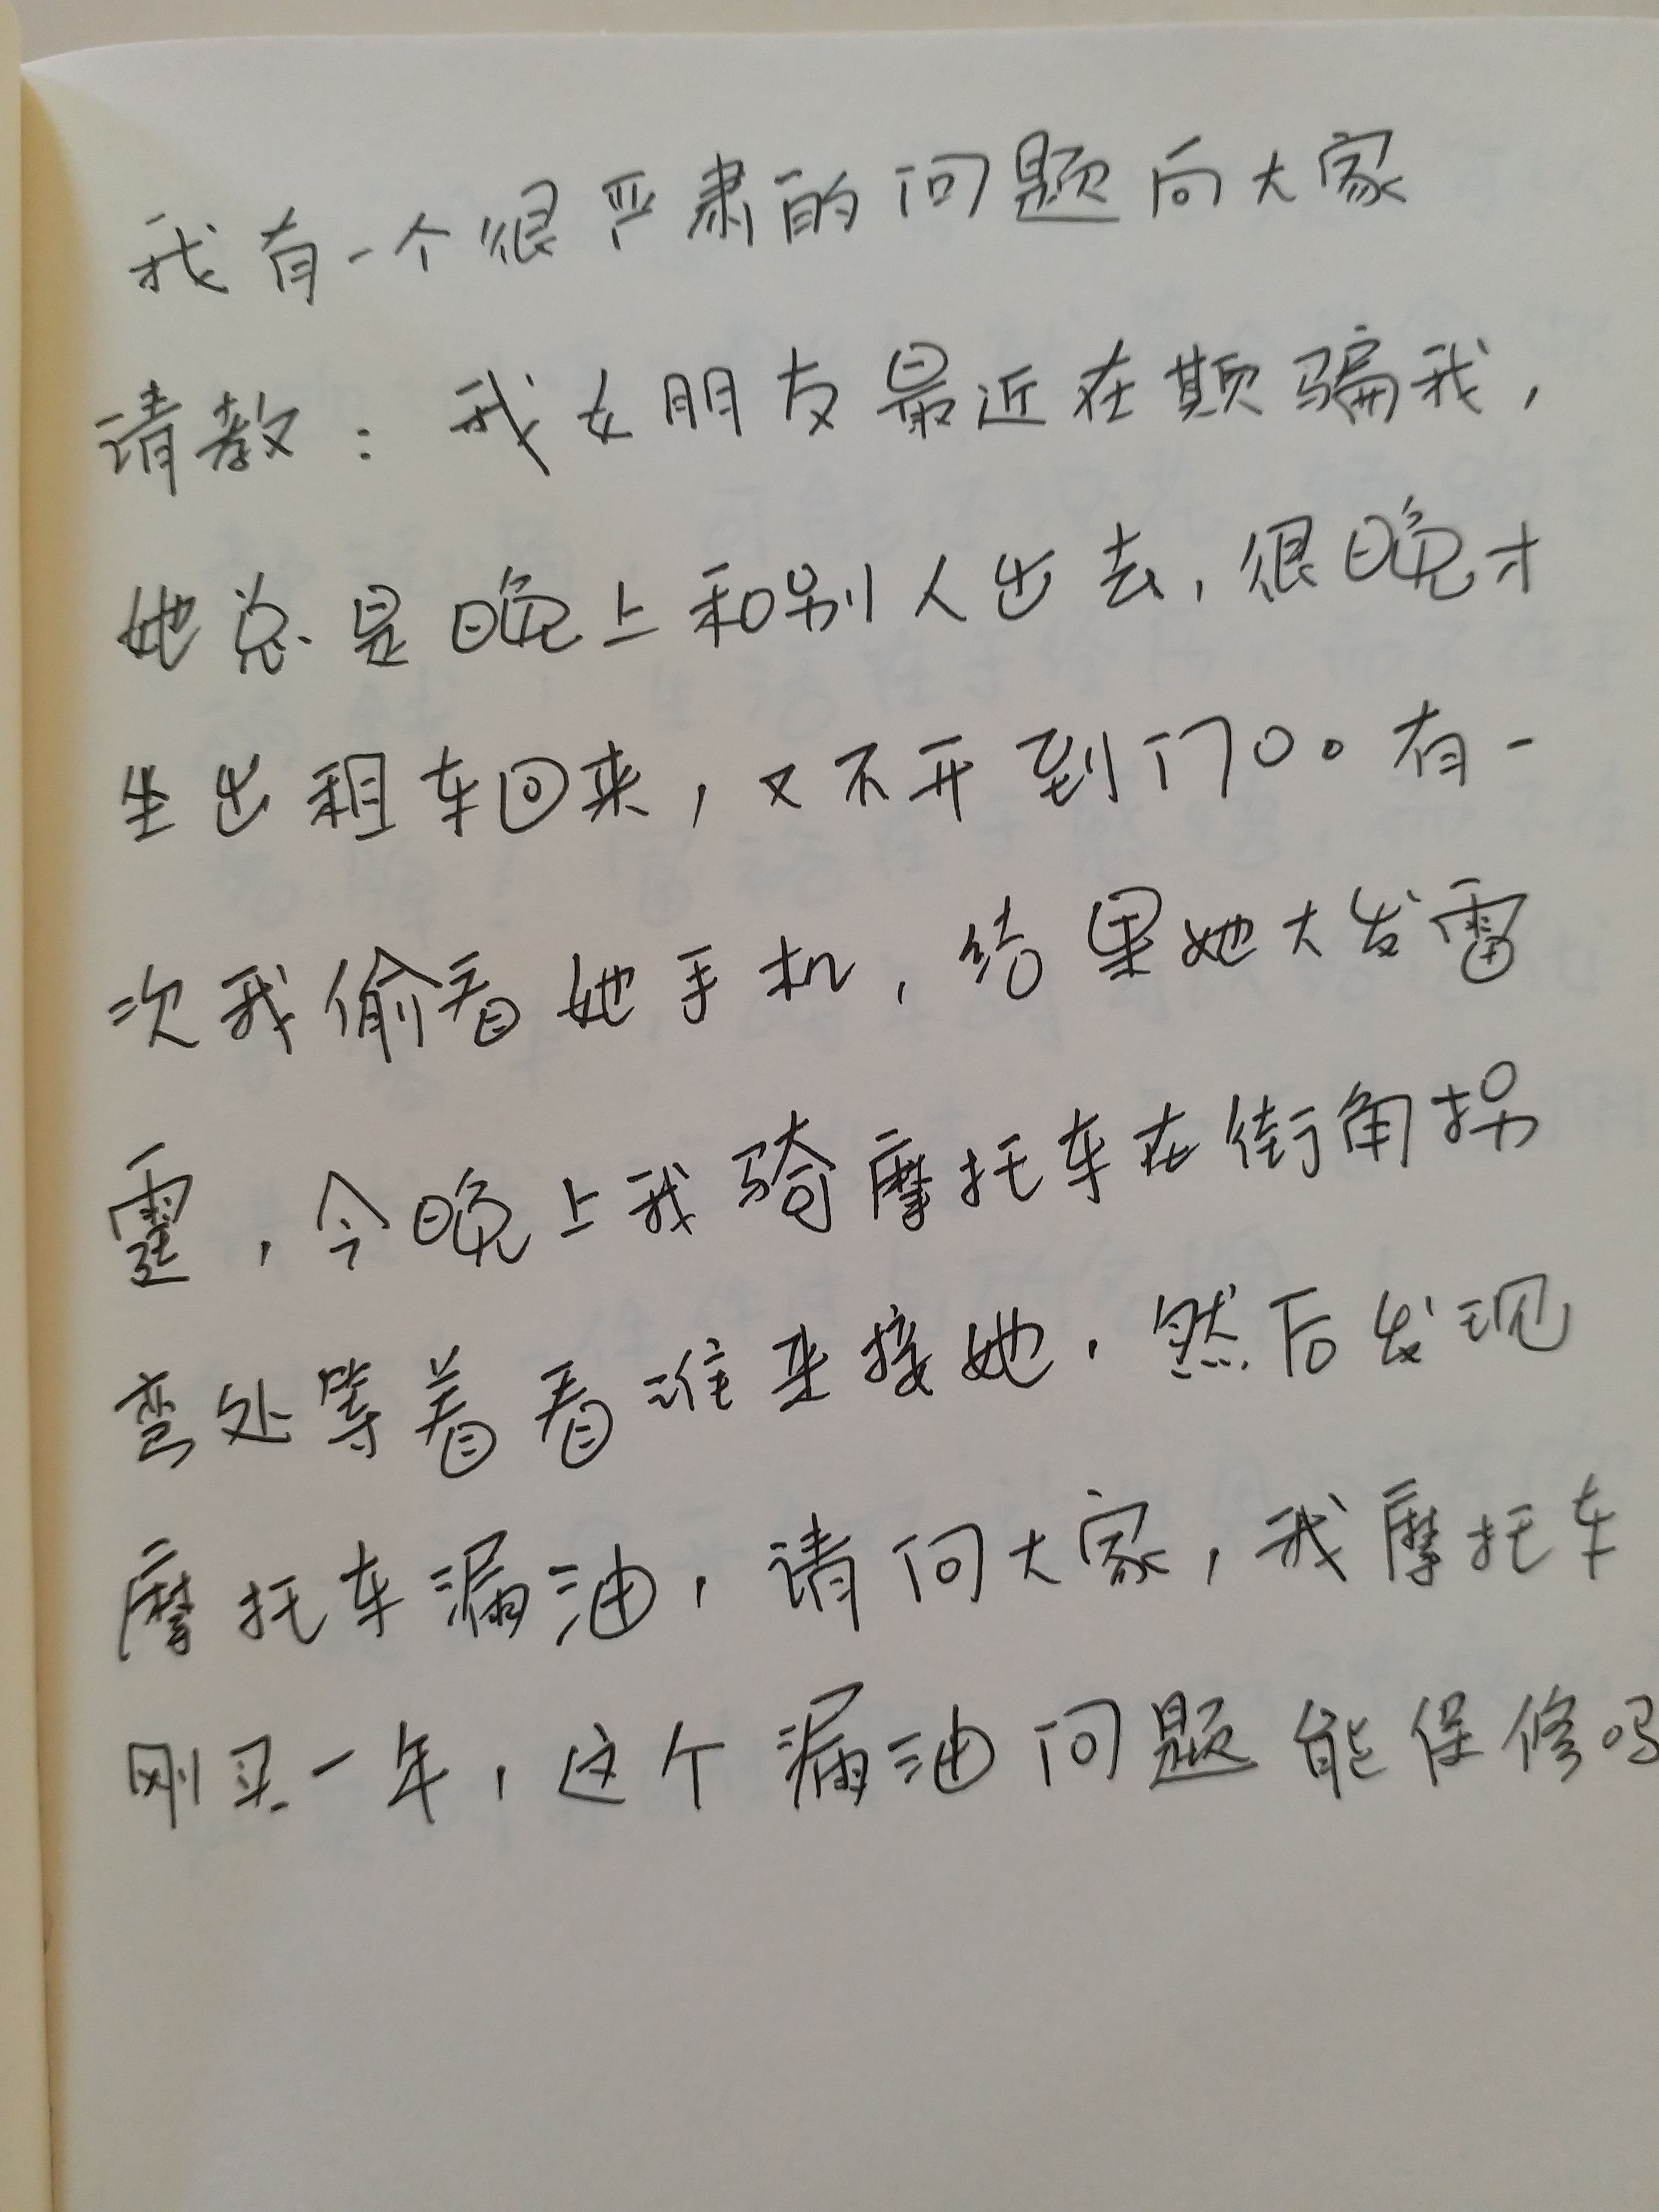 我有一个很严肃的问题向大家
请教：我女朋友最近在欺骗我，
她总是晚上和别人出去，很晚才
坐出租车回来，又不开到门口。有一
次我偷看她手机，结果她大发雷
霆，今晚上我骑摩托车在街角拐
弯处等着看谁来接她，然后发现
摩托车漏油，请问大家，我摩托车
刚买一年，这个漏油问题能保修吗